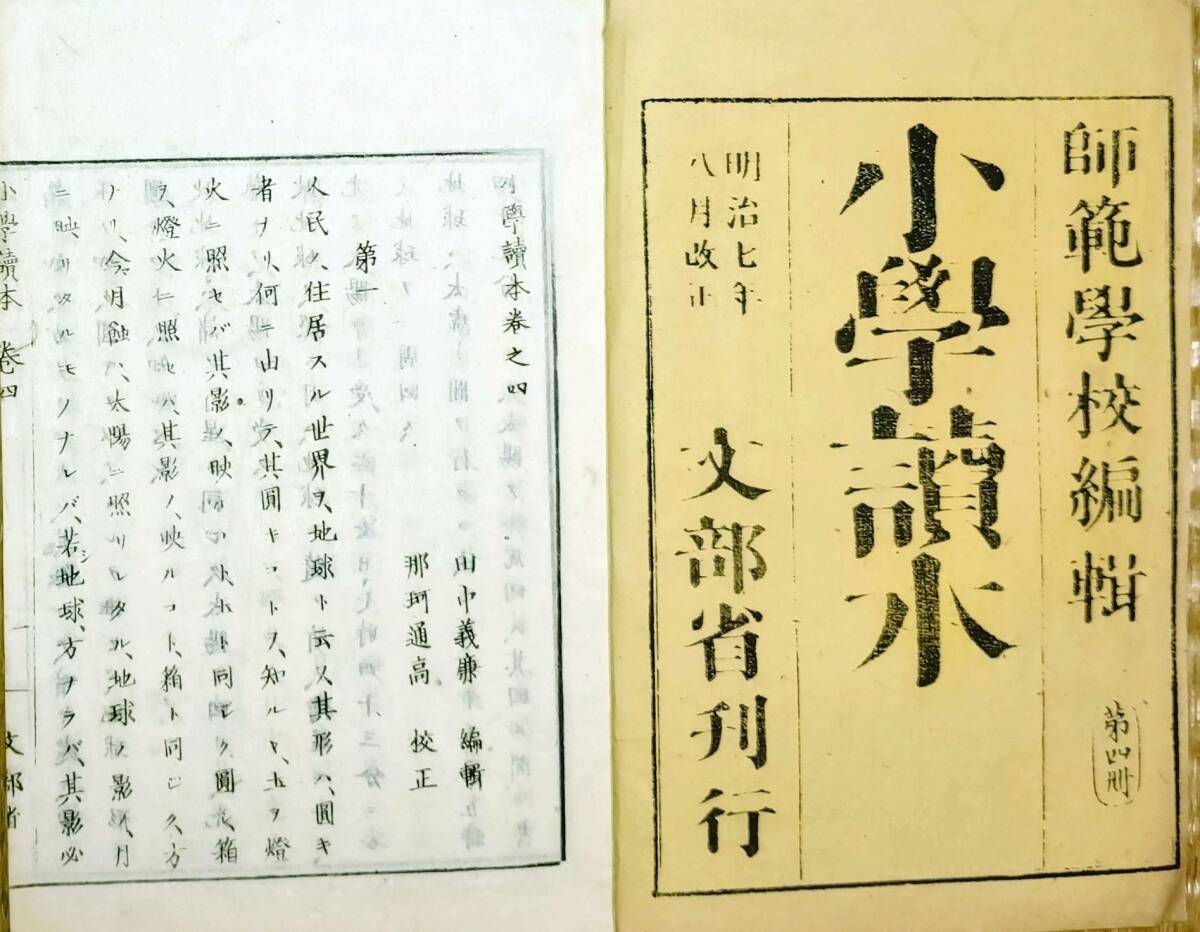 師範學校編輯
第四册
小學讀本
明治七年
八月改正
文部省刊行
小學讀本卷之四
田中義廉 編輯
那珂通高 校正
第一
人民ノ、住居スル世界ヲ、地球ト云フ、其形ハ、圓キ
者ナリ、何ニ由リテ、其圓キコトヲ、知ルヤ、玉ヲ燈
火ニ照セバ、其影ノ映ルコト、同ジク圓ク、箱
ヲ、燈火ニ照セバ、其影ノ、映ルコト、箱ト同ジク、方
ナリ、今月蝕ハ、太陽ニ照サレタル、地球ノ影ノ、月
ニ映リタルモノナレバ、若シ地球、方ナラバ、其影必
小學讀本 卷四
一
文部省